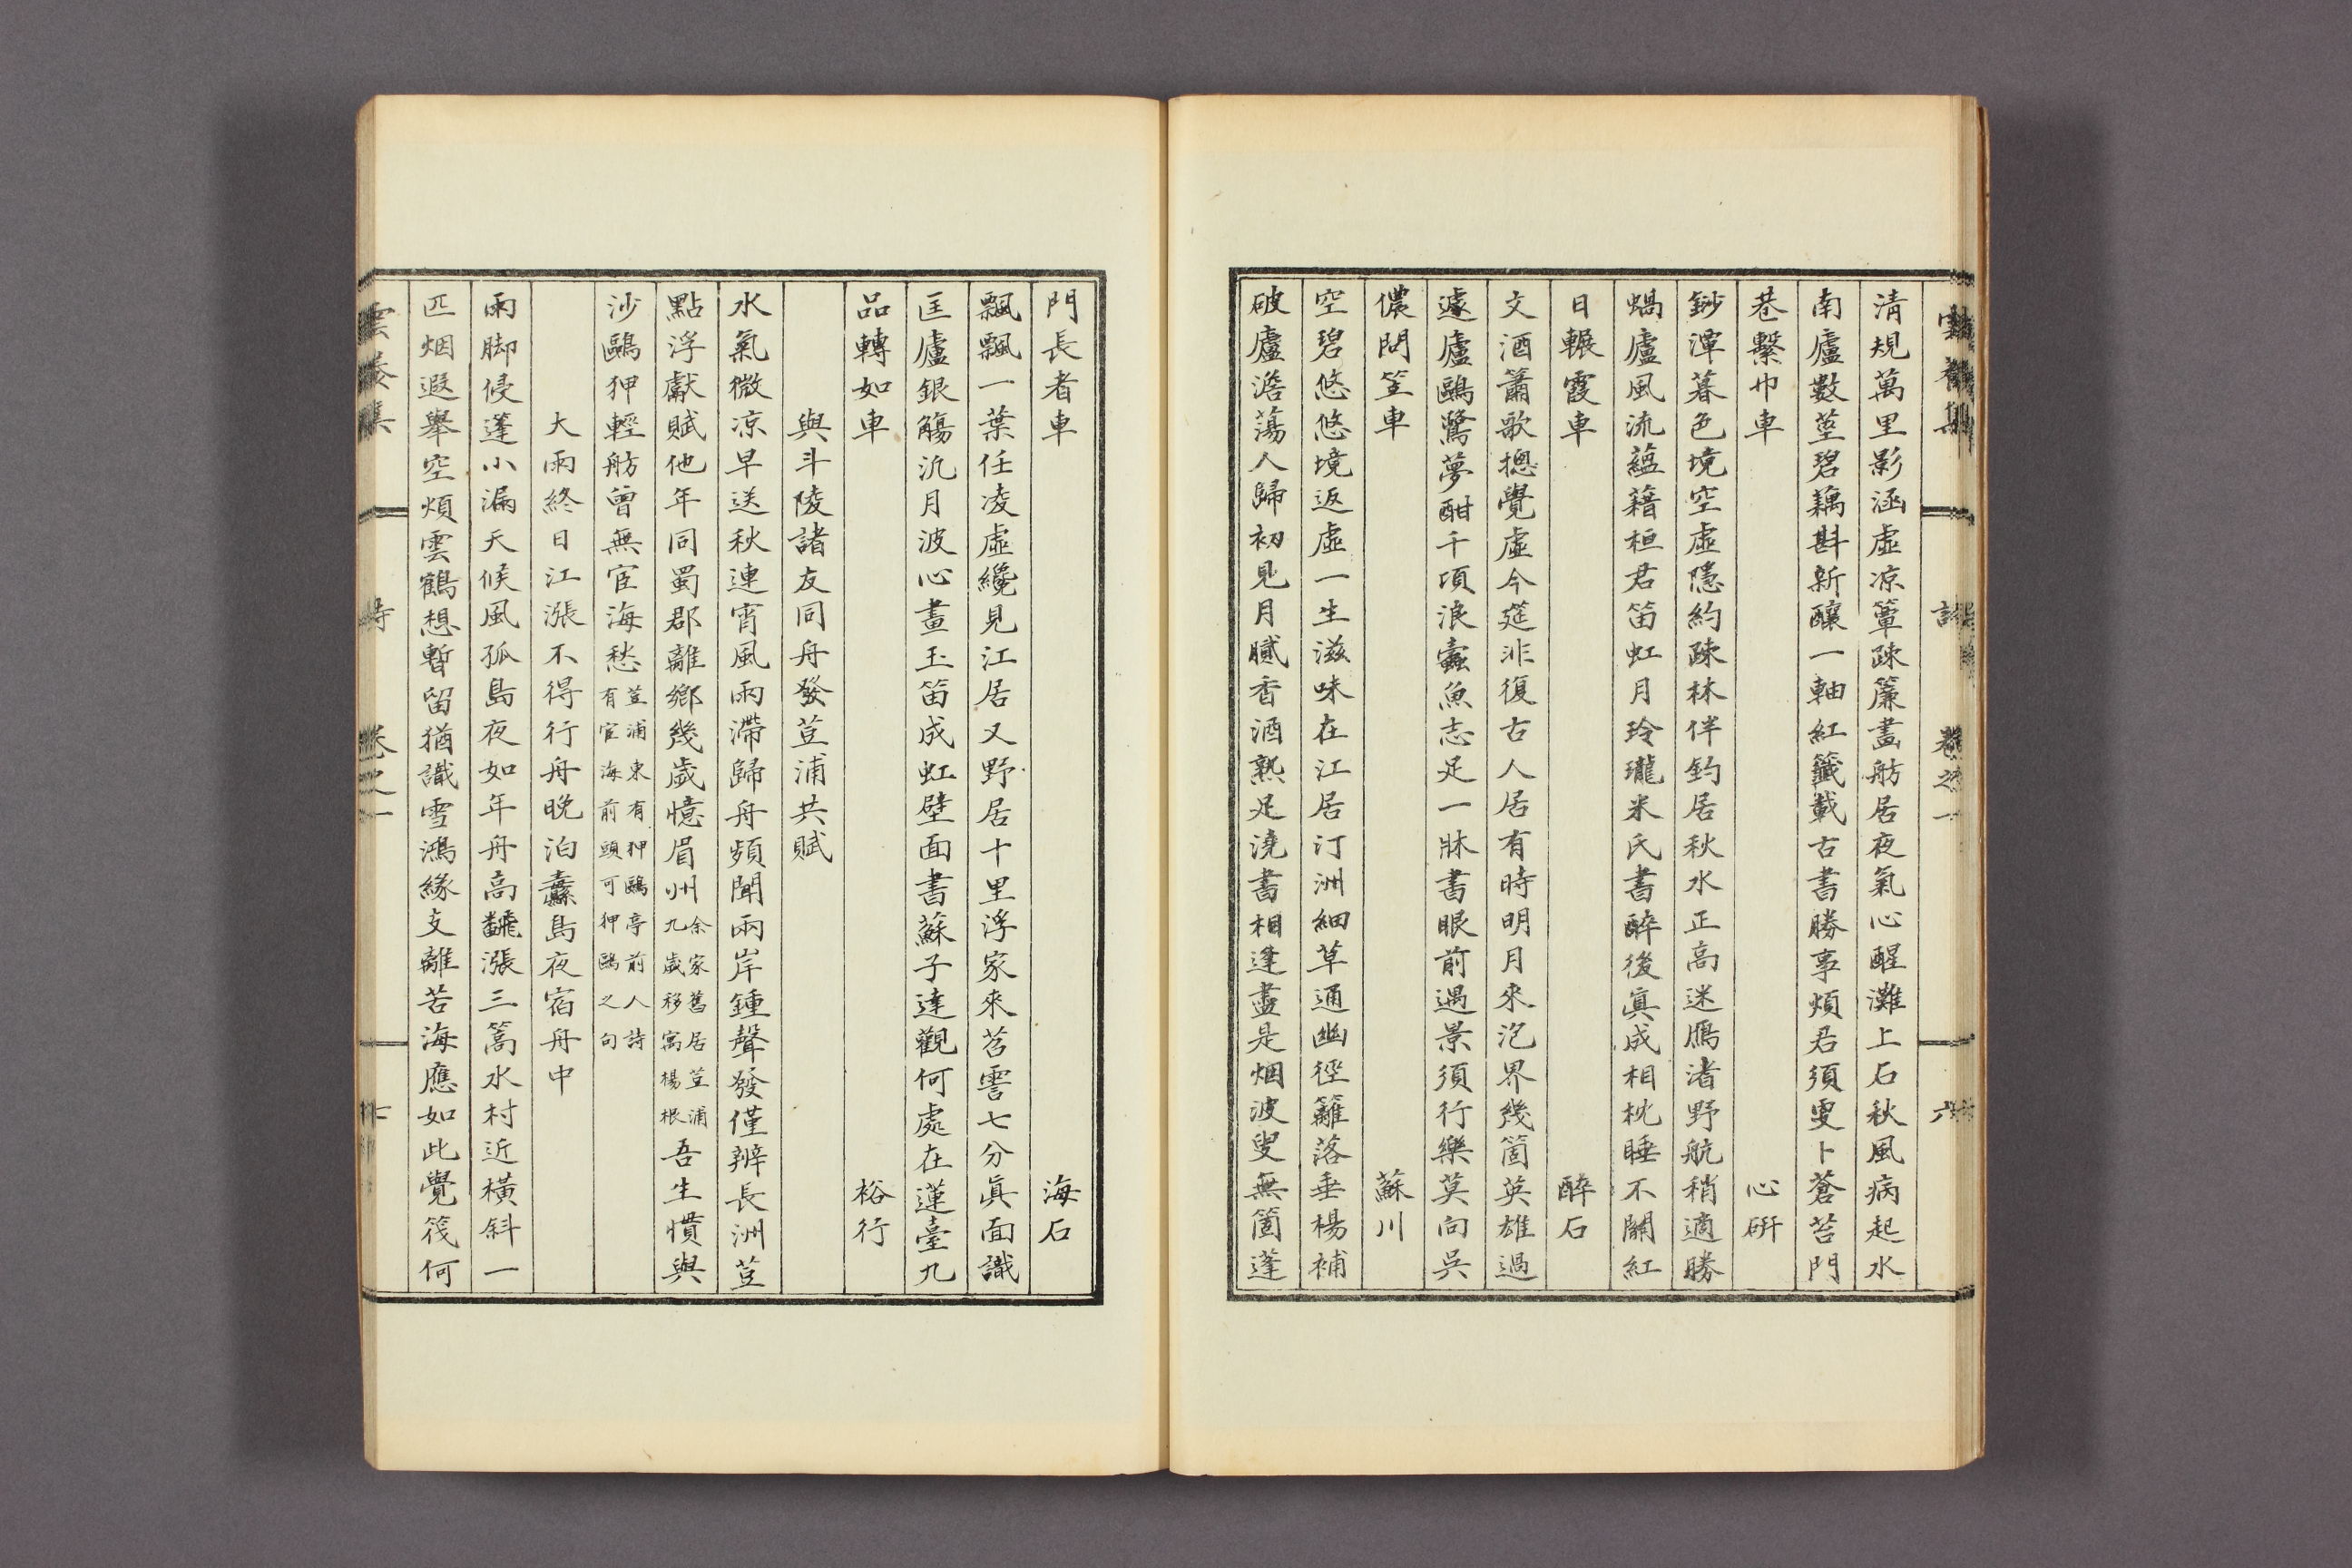 清規萬里影涵虛凉簟疎簾畵舫居夜氣心醒灘上石秋風病起水
南廬數莖碧藕斟新釀一軸紅籤載古書勝事煩君須叟卜蒼苔門
巷繫巾車
心研
鈔潭暮色境空虛隱約疎林伴釣居秋水正高迷鴈渚野航稍適勝
蝸廬風流蘊藉桓君笛虹月玲瓏米氏書醉後眞成相枕睡不關紅
日輾霞車
醉石
文酒簫歌摠覺虛今筵非復古人居有時明月來泡界幾箇英雄過
遽廬鷗鷺夢酣千項浪蠹魚志足一牀書眼前過景須行樂莫向吳
儂問笠車
蘇川
空碧悠悠境返虛一生滋味在江居汀洲細草通幽徑籬落垂楊補
破廬澹蕩人歸初見月膩香酒熟足澆書相逢盡是烟波叟無箇蓬
門長者車
海石
飄飄一葉任凌虛纔見江居又野居十里浮家來苕霅七分眞面識
匡廬銀觴汎月波心畫玉笛成虹壁面書蘇子達觀何處在蓮臺九
品轉如車
裕行
與斗陵諸友同舟發荳浦共賦
水氣微凉早送秋連宵風雨滯歸舟頻聞兩岸鍾聲發僅辨長洲荳
點浮獻賦他年同蜀郡離鄉幾歲憶眉州余家舊居荳浦九歲移寓楊根吾生慣與
沙鷗狎輕舫曾無宦海愁荳浦東有狎鷗亭前人詩有宦海前頭可狎鷗之句
大雨終日江漲不得行舟晚泊纛島夜宿舟中
雨脚侵蓬小漏天候風孤島夜如年舟高飜漲三篙水村近橫斜一
匹烟遐擧空煩雲鶴想暫留猶識雪鴻緣支離苦海應如此覺筏何
雲養集
詩
卷之一